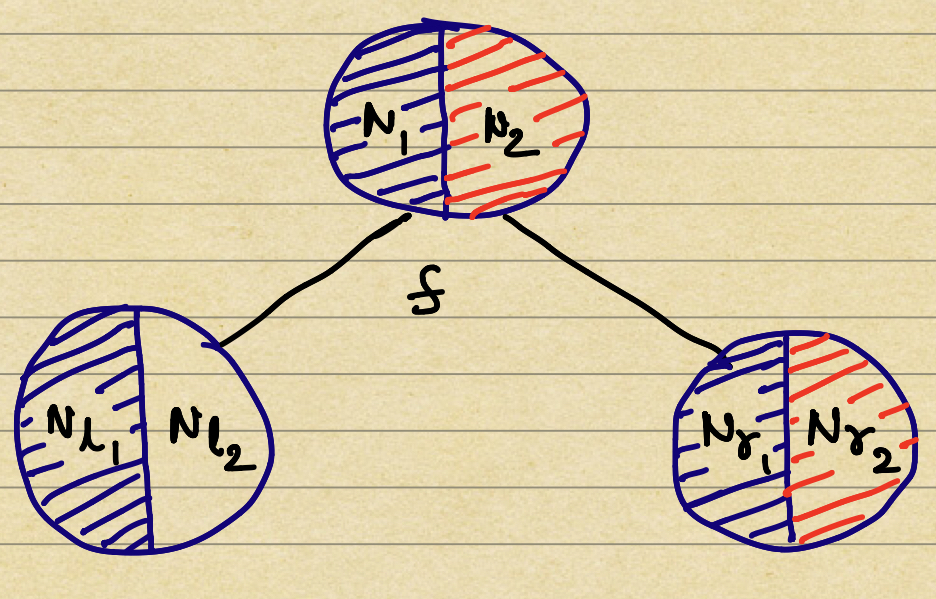 N₁ N₂
f
Nl₁ Nl₂ Nr₁ Nr₂